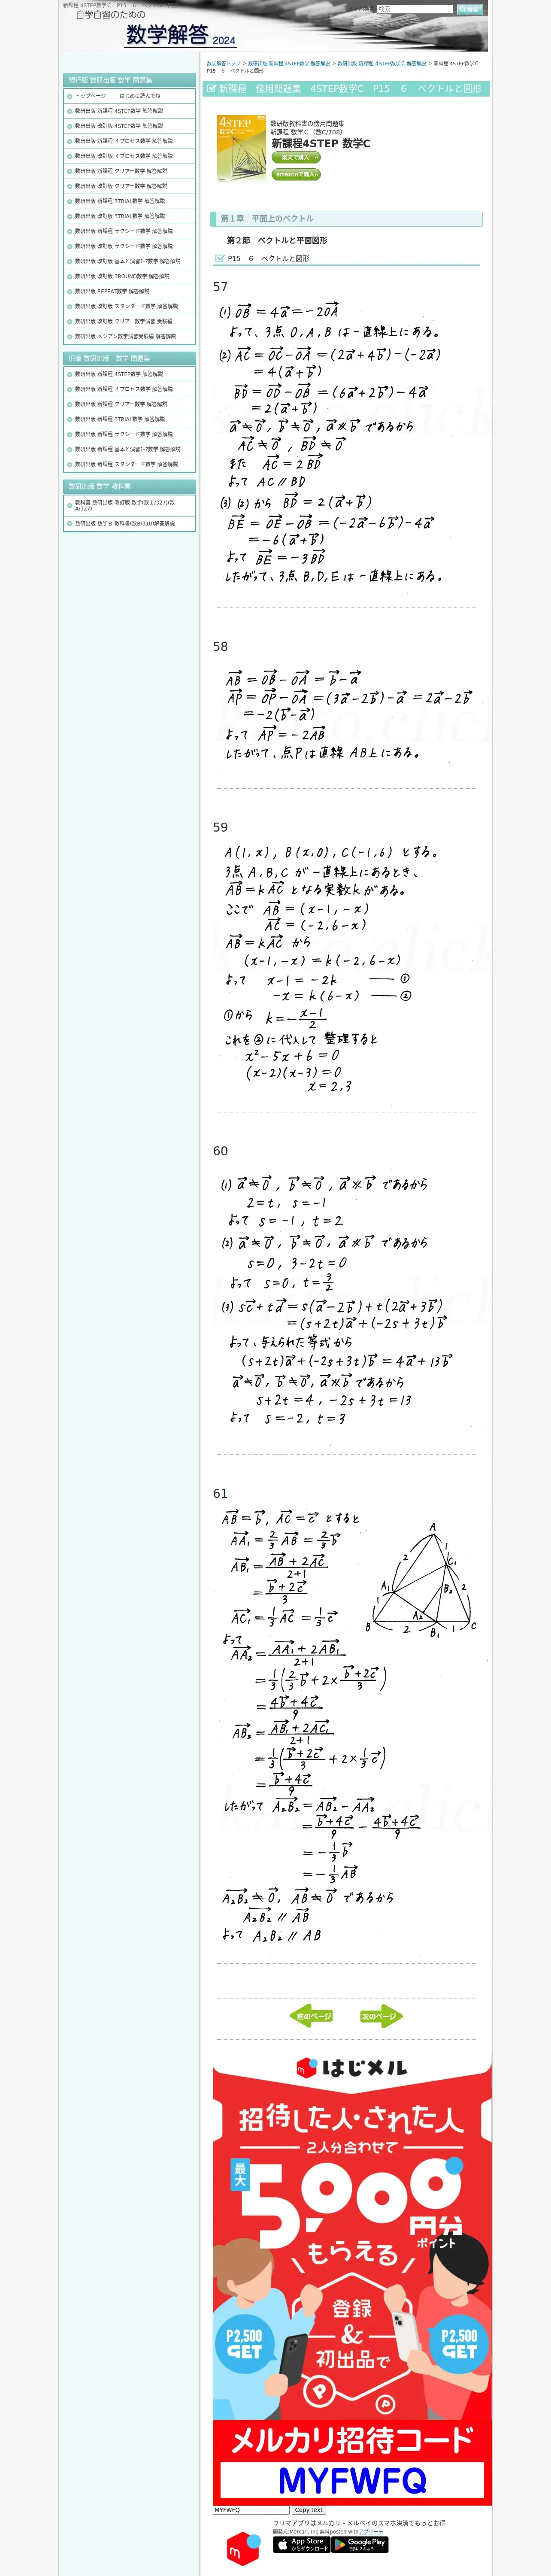 新課程 4STEP数学Ｃ　P15　６　ベクトルと図形
自学自習のための
数学解答 2024
検索
数学解答トップ ＞ 数研出版 新課程 4STEP数学 解答解説 ＞ 数研出版 新課程 4STEP数学C 解答解説 ＞ 新課程 4STEP数学C
P15　６　ベクトルと図形
新課程　傍用問題集　4STEP数学C　P15　６　ベクトルと図形
現行版 数研出版 数学 問題集
トップページ　～ はじめに読んでね ～
数研出版 新課程 4STEP数学 解答解説
数研出版 改訂版 4STEP数学 解答解説
数研出版 新課程 ４プロセス数学 解答解説
数研出版 改訂版 ４プロセス数学 解答解説
数研出版 新課程 クリアー数学 解答解説
数研出版 改訂版 クリアー数学 解答解説
数研出版 新課程 3TRIAL数学 解答解説
数研出版 改訂版 3TRIAL数学 解答解説
数研出版 新課程 サクシード数学 解答解説
数研出版 改訂版 サクシード数学 解答解説
数研出版 改訂版 3ROUND数学 解答解説
数研出版 REPEAT数学 解答解説
数研出版 改訂版 スタンダード数学 解答解説
数研出版 改訂版 クリアー数学演習 受験編
数研出版 メジアン数学演習受験編 解答解説
旧版 数研出版　数学 問題集
数研出版 新課程 4STEP数学 解答解説
数研出版 新課程 ４プロセス数学 解答解説
数研出版 新課程 クリアー数学 解答解説
数研出版 新課程 3TRIAL数学 解答解説
数研出版 新課程 サクシード数学 解答解説
数研出版 新課程 スタンダード数学 解答解説
数研出版 数学 教科書
教科書 数研出版 改訂版 数学(数Ⅰ/327)(数
A/327)
数研出版 数学Ｂ 教科書(数B/310)解答解説
4STEP
数学C
数研版教科書の傍用問題集
新課程 数学Ｃ（数C/708）
新課程4STEP 数学C
楽天で購入
amazonで購入
第１章　平面上のベクトル
第２節　ベクトルと平面図形
P15　６　ベクトルと図形
57
(1) OB→ = 4a→ = -2OA→
よって、3点 O, A, B は一直線上にある。
(2) AC→ = OC→ - OA→ = (2a→ + 4b→) - (-2a→)
= 4(a→ + b→)
BD→ = OD→ - OB→ = (6a→ + 2b→) - 4a→
= 2(a→ + b→)
a→ ≠ 0→, b→ ≠ 0→, a→ ∦ b→ であるから
AC→ ≠ 0→, BD→ ≠ 0→
また AC→ = 2BD→
よって AC // BD
(3) (2) から BD→ = 2(a→ + b→)
BE→ = OE→ - OB→ = (-2a→ - 6b→) - 4a→
= -6(a→ + b→)
よって BE→ = -3BD→
したがって、3点 B, D, E は一直線上にある。
58
AB→ = OB→ - OA→ = b→ - a→
AP→ = OP→ - OA→ = (3a→ - 2b→) - a→ = 2a→ - 2b→
= -2(b→ - a→)
よって AP→ = -2AB→
したがって、点Pは直線 AB上にある。
59
A(1, x), B(x, 0), C(-1, 6) とする。
3点 A, B, C が一直線上にあるとき、
AB→ = kAC→ となる実数kがある。
ここで AB→ = (x-1, -x)
AC→ = (-2, 6-x)
AB→ = kAC→ から
(x-1, -x) = k(-2, 6-x)
よって x-1 = -2k ―― ①
-x = k(6-x) ―― ②
①から k = -(x-1)/2
これを②に代入して 整理すると
x² - 5x + 6 = 0
(x-2)(x-3) = 0
x = 2, 3
60
(1) a→ ≠ 0→, b→ ≠ 0→, a→ ∦ b→ であるから
2 = t, s = -1
よって s = -1, t = 2
(2) a→ ≠ 0→, b→ ≠ 0→, a→ ∦ b→ であるから
s = 0, 3-2t = 0
よって s = 0, t = 3/2
(3) sc→ + td→ = s(a→ - 2b→) + t(2a→ + 3b→)
= (s+2t)a→ + (-2s+3t)b→
よって、与えられた等式から
(s+2t)a→ + (-2s+3t)b→ = 4a→ + 13b→
a→ ≠ 0→, b→ ≠ 0→, a→ ∦ b→ であるから
s+2t = 4, -2s+3t = 13
よって s = -2, t = 3
61
AB→ = b→, AC→ = c→ とすると
AA₁→ = 2/3 AB→ = 2/3 b→
AB₁→ = (AB→ + 2AC→)/(2+1)
= (b→ + 2c→)/3
AC₁→ = 1/3 AC→ = 1/3 c→
よって
AA₂→ = (AA₁→ + 2AB₁→)/(2+1)
= 1/3(2/3 b→ + 2 × (b→ + 2c→)/3)
= (4b→ + 4c→)/9
AB₂→ = (AB₁→ + 2AC₁→)/(2+1)
= 1/3((b→ + 2c→)/3 + 2 × 1/3 c→)
= (b→ + 4c→)/9
したがって A₂B₂→ = AB₂→ - AA₂→
= (b→ + 4c→)/9 - (4b→ + 4c→)/9
= -1/3 b→
= -1/3 AB→
A₂B₂→ ≠ 0→, AB→ ≠ 0→ であるから
A₂B₂→ // AB→
よって A₂B₂ // AB
A
2
1
C₁
A₁
B₂
2
1
A₂
B
2
B₁
1
C
前のページ
次のページ
はじメル
招待した人・された人
2人分合わせて
最大
5,000
円分
ポイント
もらえる
登録
&
初出品で
P2,500
GET
P2,500
GET
メルカリ招待コード
MYFWFQ
MYFWFQ
Copy text
フリマアプリはメルカリ - メルペイのスマホ決済でもっとお得
開発元:Mercari, Inc.無料posted withアプリーチ
App Store
からダウンロード
Google Play
で手に入れよう